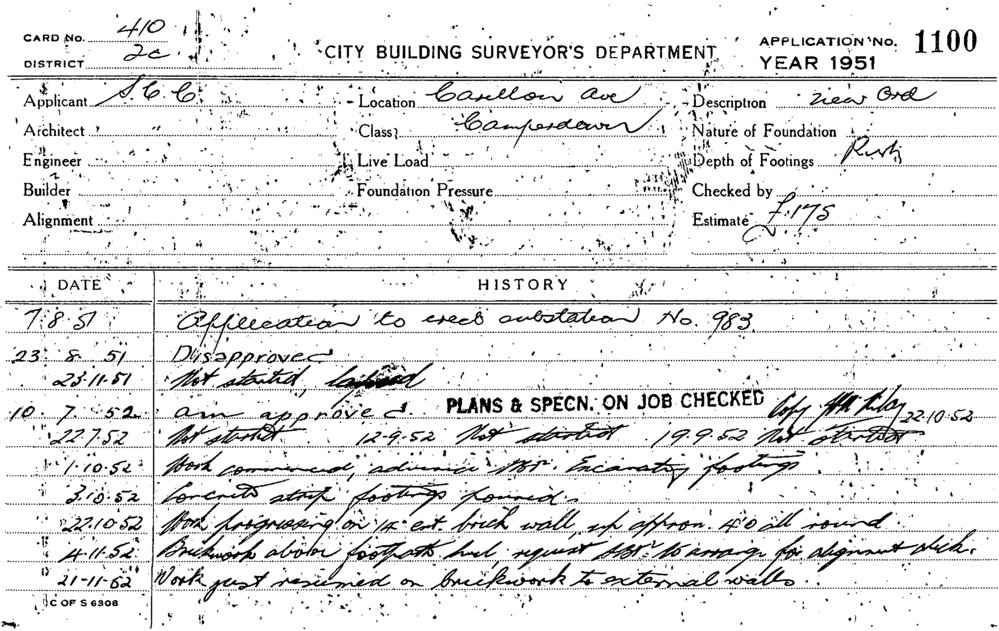 CARD No. 410
DISTRICT 2c
CITY BUILDING SURVEYOR'S DEPARTMENT
APPLICATION No. 1100
YEAR 1951
Applicant S.C.C. Location Carillon Ave Description new Ord
Architect Class Camperdown Nature of Foundation
Engineer Live Load Depth of Footings
Builder Foundation Pressure Checked by
Alignment Estimate £175
DATE HISTORY
7 8 51 Application to erect substation No. 983
23 8 51 Disapproved
23.11.51 Not started,
10 7 52 am approved. PLANS & SPECN. ON JOB CHECKED Copy 22.10.52
22.7.52 Not started 12.9.52 Not started 19.9.52 Not started
1.10.52 Work commenced, Excavating footings
3.10.52 Concrete strip footings poured.
22.10.52 Work progressing on ext. brick wall up approx. 4'0 all round
4.11.52 Brickwork above footpath level request to arrange for alignment check.
21-11-52 Work just resumed on brickwork to external walls.
C OF S 6308